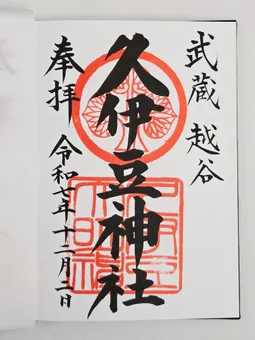 武蔵 越谷
久伊豆神社
奉拝 令和七年十二月二日